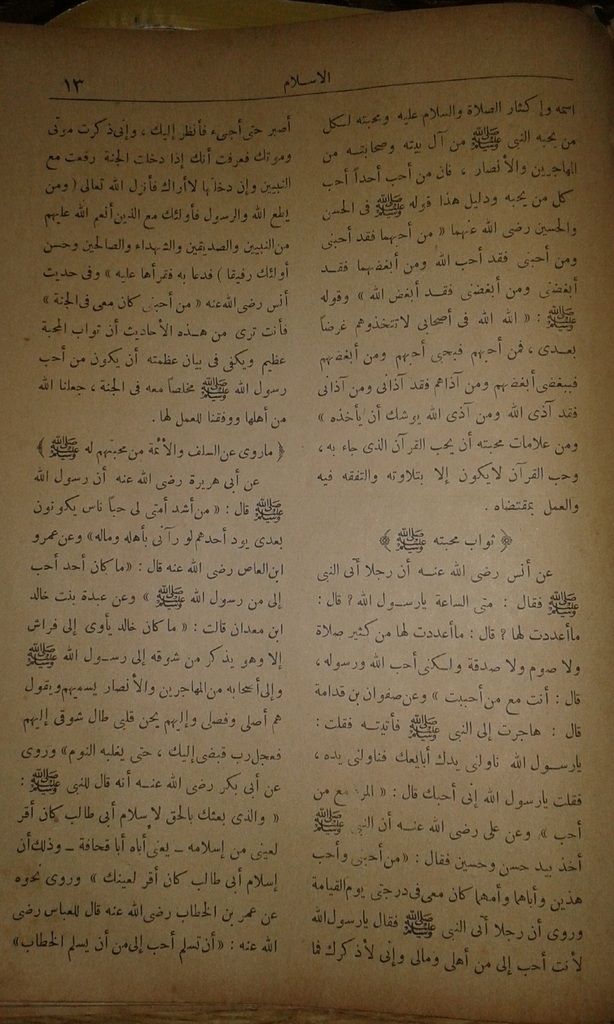 الاسلام
١٣
اسمه وإكثار الصلاة والسلام عليه ومحبته لكل
من يحبه النبي ﷺ من آل بيته وصحابته من
المهاجرين والأنصار ، فان من أحب أحداً أحب
كل من يحبه ودليل هذا قوله ﷺ فى الحسن
والحسين رضى الله عنهما « من أحبهما فقد أحبنى
ومن أحبنى فقد أحب الله ومن أبغضهما فقد
أبغضنى ومن أبغضنى فقد أبغض الله » وقوله
ﷺ : « الله الله فى أصحابى لاتتخذوهم غرضاً
بعدى ، فمن أحبهم فبحبى أحبهم ومن أبغضهم
فببغضى أبغضهم ومن آذاهم فقد آذانى ومن آذانى
فقد آذى الله ومن آذى الله يوشك أن يأخذه »
ومن علامات محبته أن يحب القرآن الذى جاء به ،
وحب القرآن لايكون إلا بتلاوته والتفقه فيه
والعمل بمقتضاه .
﴿ ثواب محبته ﷺ ﴾
عن أنس رضى الله عنه أن رجلا أتى النبى
ﷺ فقال : متى الساعة يارسول الله ؟ قال :
ماأعددت لها ؟ قال : ماأعددت لها من كثير صلاة
ولا صوم ولا صدقة ولكنى أحب الله ورسوله ،
قال : أنت مع من أحببت » وعن صفوان بن قدامة
قال : هاجرت إلى النبى ﷺ فأتيته فقلت :
يارسول الله ناولنى يدك أبايعك فناولنى يده ،
فقلت يارسول الله إنى أحبك قال : « المرء مع من
أحب » وعن على رضى الله عنه أن النبى ﷺ
أخذ بيد حسن وحسين فقال : « من أحبنى وأحب
هذين وأباهما وأمهما كان معى فى درجتى يوم القيامة
وروى أن رجلا أتى النبى ﷺ فقال يارسول الله
لأنت أحب إلى من أهلى ومالى وإنى لأذكرك فما
أصبر حتى أجىء فأنظر إليك ، وإنى ذكرت موتى
وموتك فعرفت أنك إذا دخلت الجنة رفعت مع
النبيين وإن دخلتها لاأراك فأنزل الله تعالى ( ومن
يطع الله والرسول فأولئك مع الذين أنعم الله عليهم
من النبيين والصديقين والشهداء والصالحين وحسن
أولئك رفيقا ) فدعا به فقرأها عليه » وفى حديث
أنس رضى الله عنه « من أحبنى كان معى فى الجنة »
فأنت ترى من هذه الأحاديث أن ثواب المحبة
عظيم ويكفى فى بيان عظمته أن يكون من أحب
رسول الله ﷺ مخلصاً معه فى الجنة ، جعلنا الله
من أهلها ووفقنا للعمل لها .
﴿ ماروى عن السلف والأئمة من محبتهم له ﷺ ﴾
عن أبى هريرة رضى الله عنه أن رسول الله
ﷺ قال : « من أشد أمتى لى حباً ناس يكونون
بعدى يود أحدهم لو رآنى بأهله وماله» وعن عمرو
ابن العاص رضى الله عنه قال : «ما كان أحد أحب
إلى من رسول الله ﷺ » وعن عبدة بنت خالد
ابن معدان قالت : « ما كان خالد يأوى إلى فراش
إلا وهو يذكر من شوقه إلى رسول الله ﷺ
وإلى أصحابه من المهاجرين والأنصار يسميهم ويقول
هم أصلى وفصلى وإليهم يحن قلبى طال شوقى إليهم
فعجل رب قبضى إليك ، حتى يغلبه النوم» وروى
عن أبى بكر رضى الله عنه أنه قال للنبى ﷺ :
« والذى بعثك بالحق لإسلام أبى طالب كان أقر
لعينى من إسلامه ـ يعنى أباه أبا قحافة ـ وذلك أن
إسلام أبى طالب كان أقر لعينك » وروى نحوه
عن عمر بن الخطاب رضى الله عنه قال للعباس رضى
الله عنه : « أن تسلم أحب إلى من أن يسلم الخطاب»